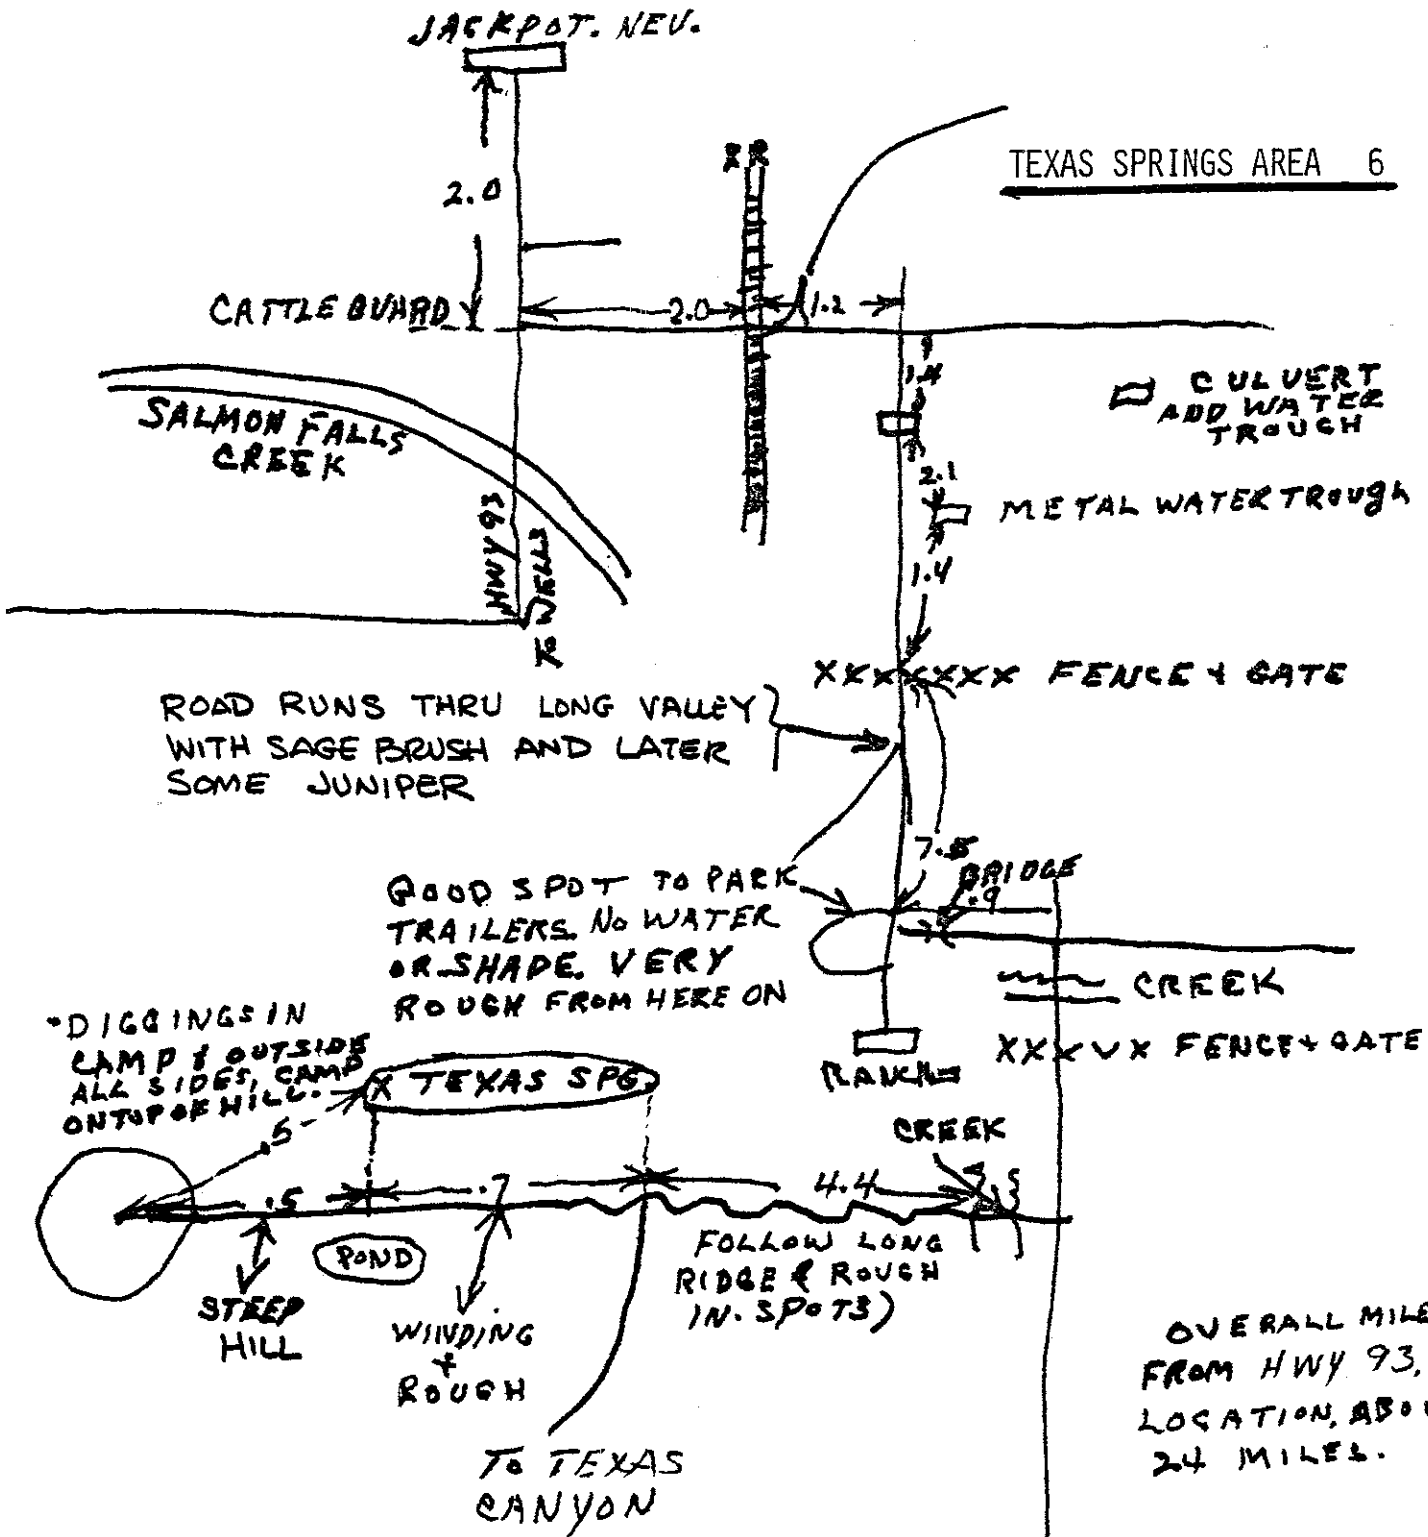 JACKPOT. NEV.
TEXAS SPRINGS AREA 6
2.0
CATTLE GUARD
2.0
1.2
SALMON FALLS
CREEK
HWY 93
TO WELLS
1.4
CULVERT
ADD WATER
TROUGH
2.1
METAL WATER TROUGH
1.4
XXXXXXX FENCE & GATE
ROAD RUNS THRU LONG VALLEY
WITH SAGE BRUSH AND LATER
SOME JUNIPER
7.5
BRIDGE
.9
GOOD SPOT TO PARK
TRAILERS. NO WATER
OR SHAPE. VERY
ROUGH FROM HERE ON
CREEK
XXXVX FENCE & GATE
RANCH
DIGGINGS IN
CAMP & OUTSIDE
ALL SIDES, CAMP
ON TOP OF HILL.
X TEXAS SPG.
.5
CREEK
.5
.7
4.4
.5
POND
STEEP
HILL
WINDING
+
ROUGH
FOLLOW LONG
RIDGE & ROUGH
IN. SPOTS)
TO TEXAS
CANYON
OVERALL MILE
FROM HWY 93,
LOCATION, ABOU
24 MILES.